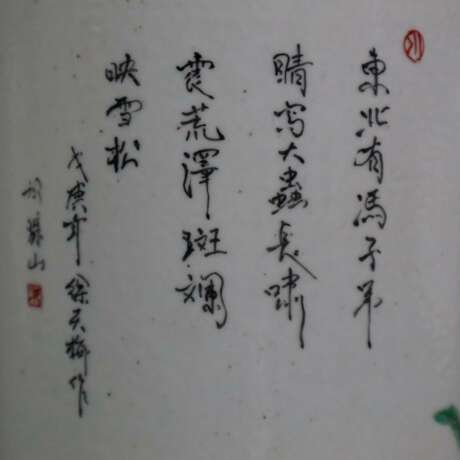 東北有馮子弟
晴寫大蟲長嘯
震荒澤斑斕
映雪松
戊庚年徐天梅作
山